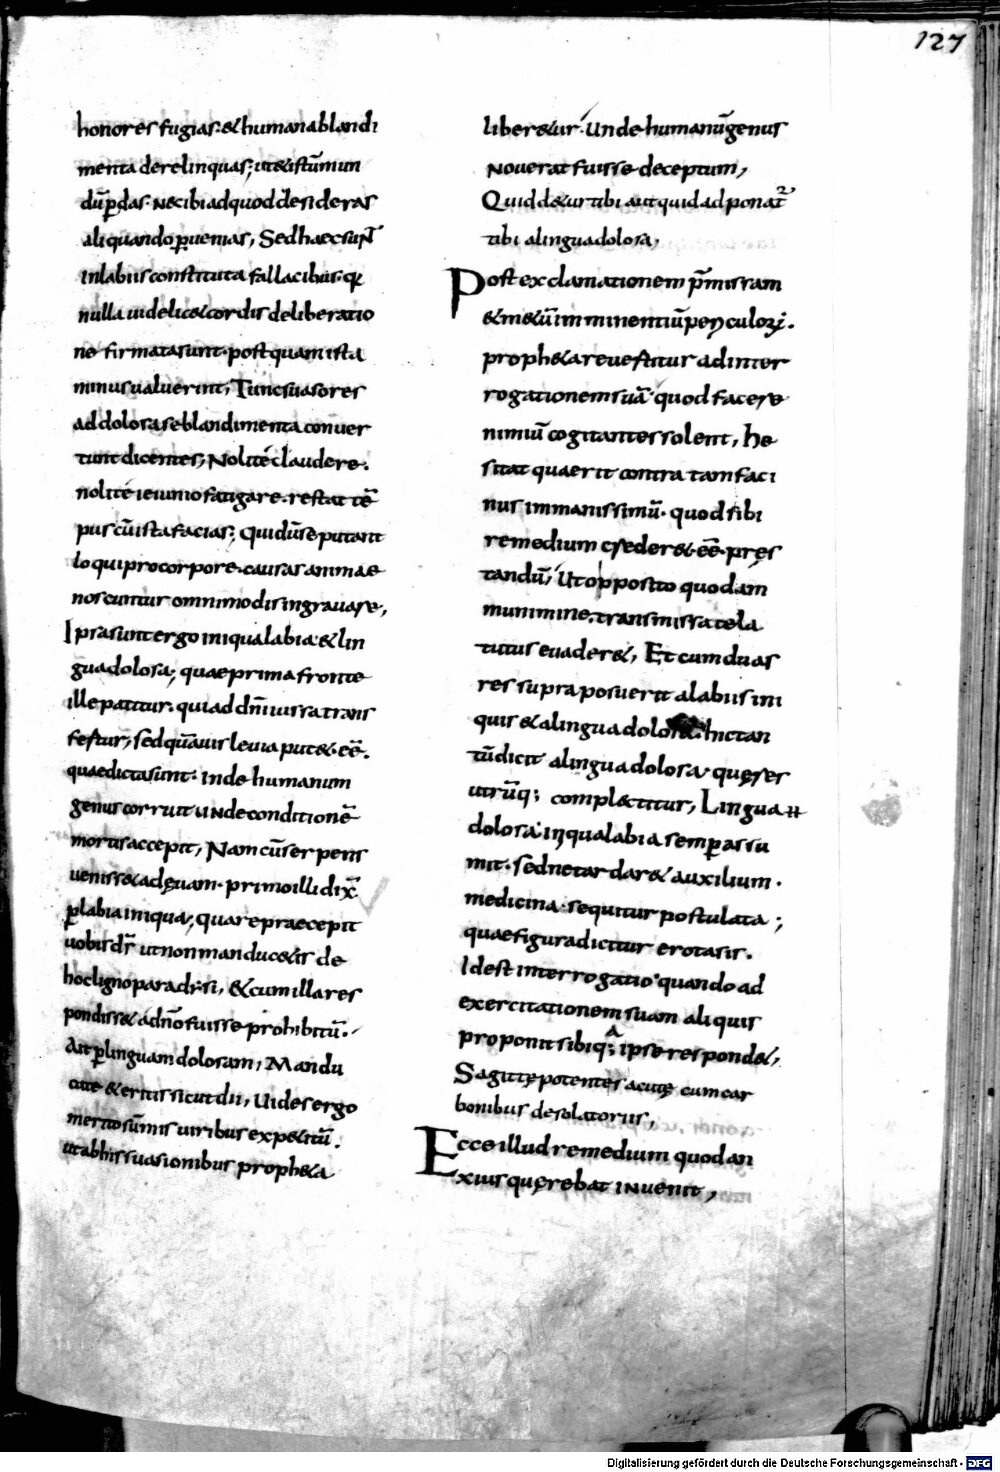 127
honores fugias· & humana blandi
menta derelinquas; ut & istū mun
dū p̄das· nec ibi ad quod desideras
aliquando p̱uenias, Sed haec sunt
in labiis constituta fallacibus· q̄
nulla uidelic& cordis deliberatio
ne firmata sunt· postquam ista
minus ualuerint, Tunc suasores
ad dolosa se blandimenta conuer
tunt dicentes; Nolite claudere·
nolite ieiunio fatigare· restat tē
pus cū ista facias; Qui dū se putant
loqui pro corpore· causas animae
noscuntur omnimodis ingrauare,
Ipsa sunt ergo iniqua labia & lin
gua dolosa; quae prima fronte
ille patitur· qui ad dn̄i iussa trans
fertur, sed quāuis leuia put& eē·
quae dicta sunt· inde humanum
genus corruit unde conditionē
mortis accepit, Nam cū serpens
uenisset ad ęuam· primo illi dix̄
p̱ labia iniqua; quare praecepit
uobis ds̄ ut non manducetis de
hoc ligno paradisi, & cum illa res
pondisset a dn̄o fuisse prohibitū·
Ait p̱ linguam dolosam, Mandu
cate & eritis sicut dii, Uides ergo
merito sūmis uiribus expetitū·
ut ab his suasionibus propheta
liber&ur· Unde humanū genus
nouerat fuisse deceptum,
Quid d&ur tibi aut quid adponat̄
tibi a lingua dolosa,
Post exclamationem p̄missam
& m&ū imminentiū periculorū·
propheta reuertitur ad inter
rogationem suā· quod facere
nimiū cogitantes solent, he
sitat quaerit contra tam faci
nus immanissimū· quod sibi
remedium crederet eē pręs
tandū, Ut opposito quodam
munimine· transmissa tela
tutus euader&, Et cum duas
res supra posuerit a labiis ini
quis & a lingua dolosa· hic tan
tūdicit a lingua dolosa· quę res
utrūq; complectitur, Lingua n
dolosa iniqua labia semp̱ assu
mit· sed ne tardaret auxilium·
medicina· sequitur postulata;
quae figura dicitur erotasis·
Id est interrogatio· quando ad
exercitationem suam aliquis
proponit sibiq; ipse respond&,
Sagittę potentes acutę cum car
bonibus desolatoriis,
Ecce illud remedium quod an
xius quęrebat inuenit,
Digitalisierung gefördert durch die Deutsche Forschungsgemeinschaft - DFG